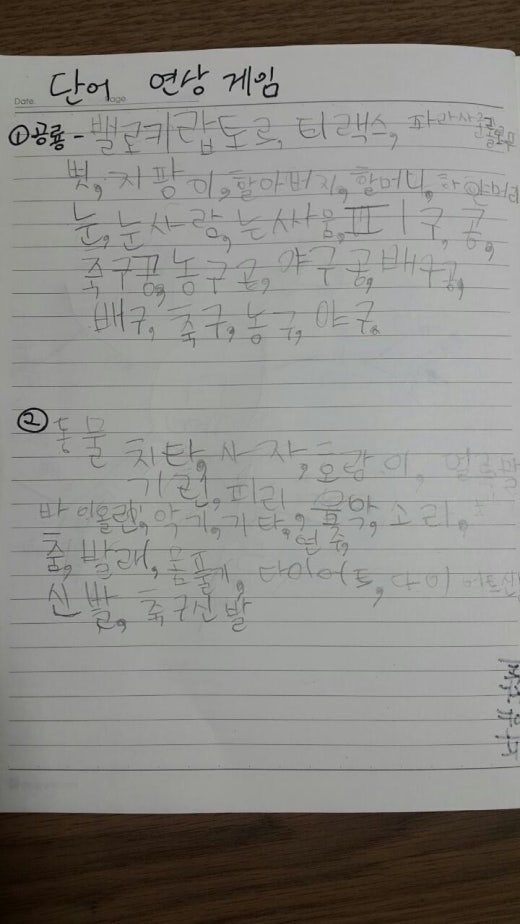 Date. Page
단어 연상 게임
①공룡 - 밸로키랍토르, 티랙스, 파라사롤로푸스
볏, 지팡이, 할아버지, 할머니,
눈, 눈사람, 눈싸움, 피구, 공,
축구공, 농구공, 야구공, 배구공,
배구, 축구, 농구, 야구.
② 동물
치타, 사자, 호랑이, 얼룩말
기린, 피리
바이올린, 악기, 기타, 음악, 소리,
연주,
춤, 발래, 몸풀기, 다이어트,
신발, 축구신발